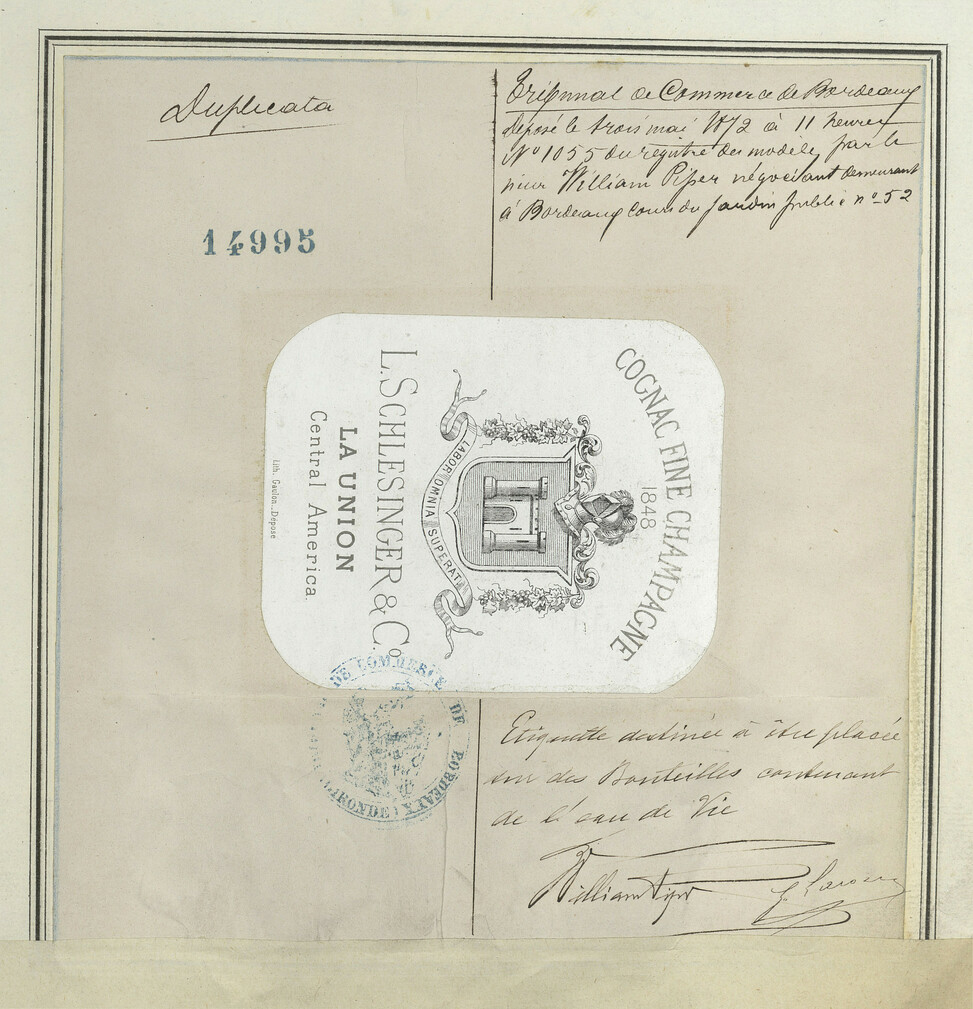 Duplicata
14995
Tribunal de Commerce de Bordeaux
déposé le trois mai 1872 à 11 heures
No 1055 du registre des modèles, par le
sieur William Piper négociant demeurant
à Bordeaux Cours du Jardin public no 52
COGNAC FINE CHAMPAGNE
1848
LABOR OMNIA SUPERAT
L. SCHLESINGER & Co
LA UNION
Central America.
Lith. Gaulon_Déposé
DE COMMERCE DE BORDEAUX (GIRONDE)
Etiquette destinée à être placée
sur des Bouteilles contenant
de l'eau de Vie
William Piper